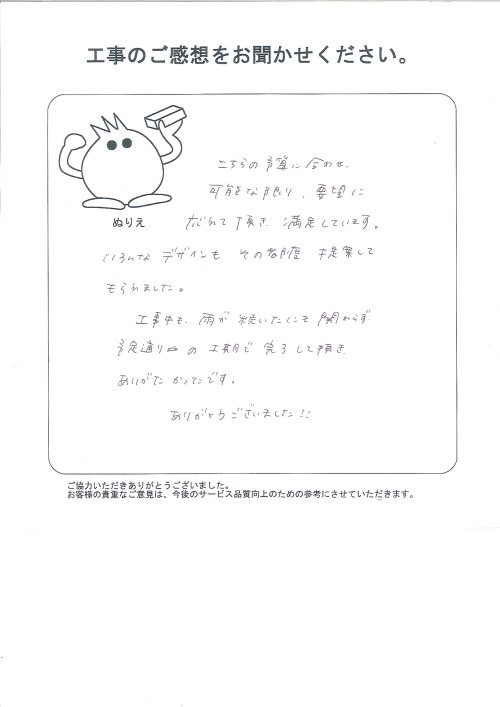 工事のご感想をお聞かせください。
ぬりえ
こちらの予算に合わせ、
可能な限り、要望に
応えて頂き 満足しています。
いろんなデザインも その都度 提案して
もらえました。
工事中も、雨が続いたにも関わらず
予定通りの工期で完了して頂き
ありがたかったです。
ありがとうございました!!
ご協力いただきありがとうございました。
お客様の貴重なご意見は、今後のサービス品質向上のための参考にさせていただきます。